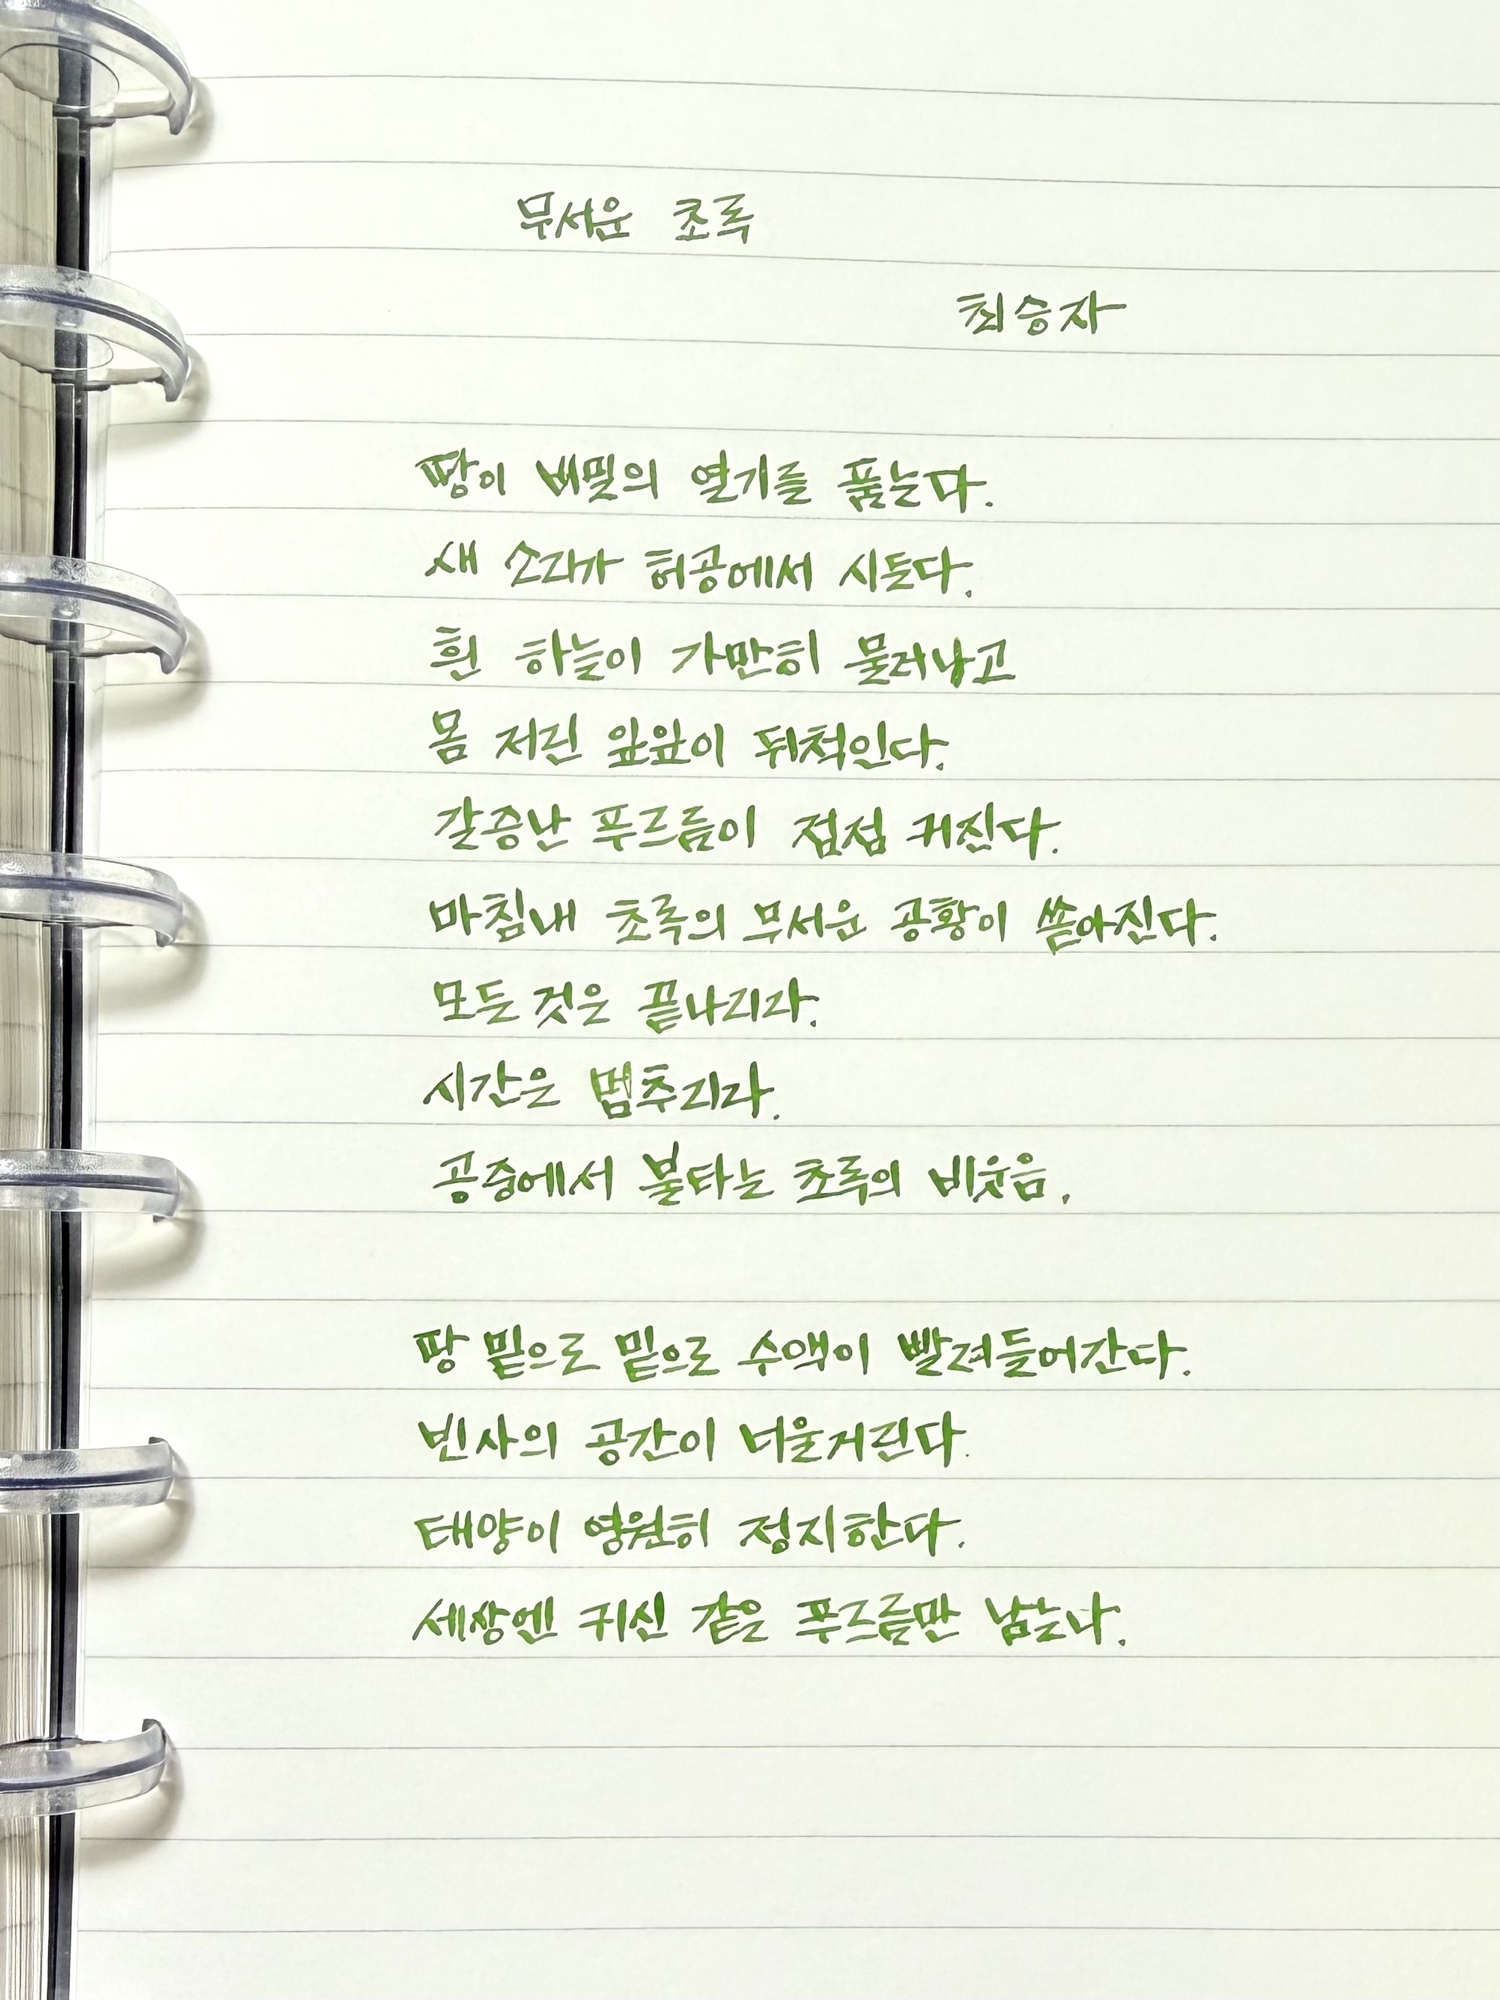 무서운 초록
최승자
땅이 비밀의 열기를 품는다.
새 소리가 허공에서 시든다.
흰 하늘이 가만히 물러나고
몸 저린 잎잎이 뒤척인다.
갈증난 푸르름이 점점 커진다.
마침내 초록의 무서운 공황이 쏟아진다.
모든 것은 끝나리라.
시간은 멈추리라.
공중에서 불타는 초록의 비웃음.
땅 밑으로 밑으로 수액이 빨려들어간다.
빈사의 공간이 너울거린다.
태양이 영원히 정지한다.
세상엔 귀신 같은 푸르름만 남는다.